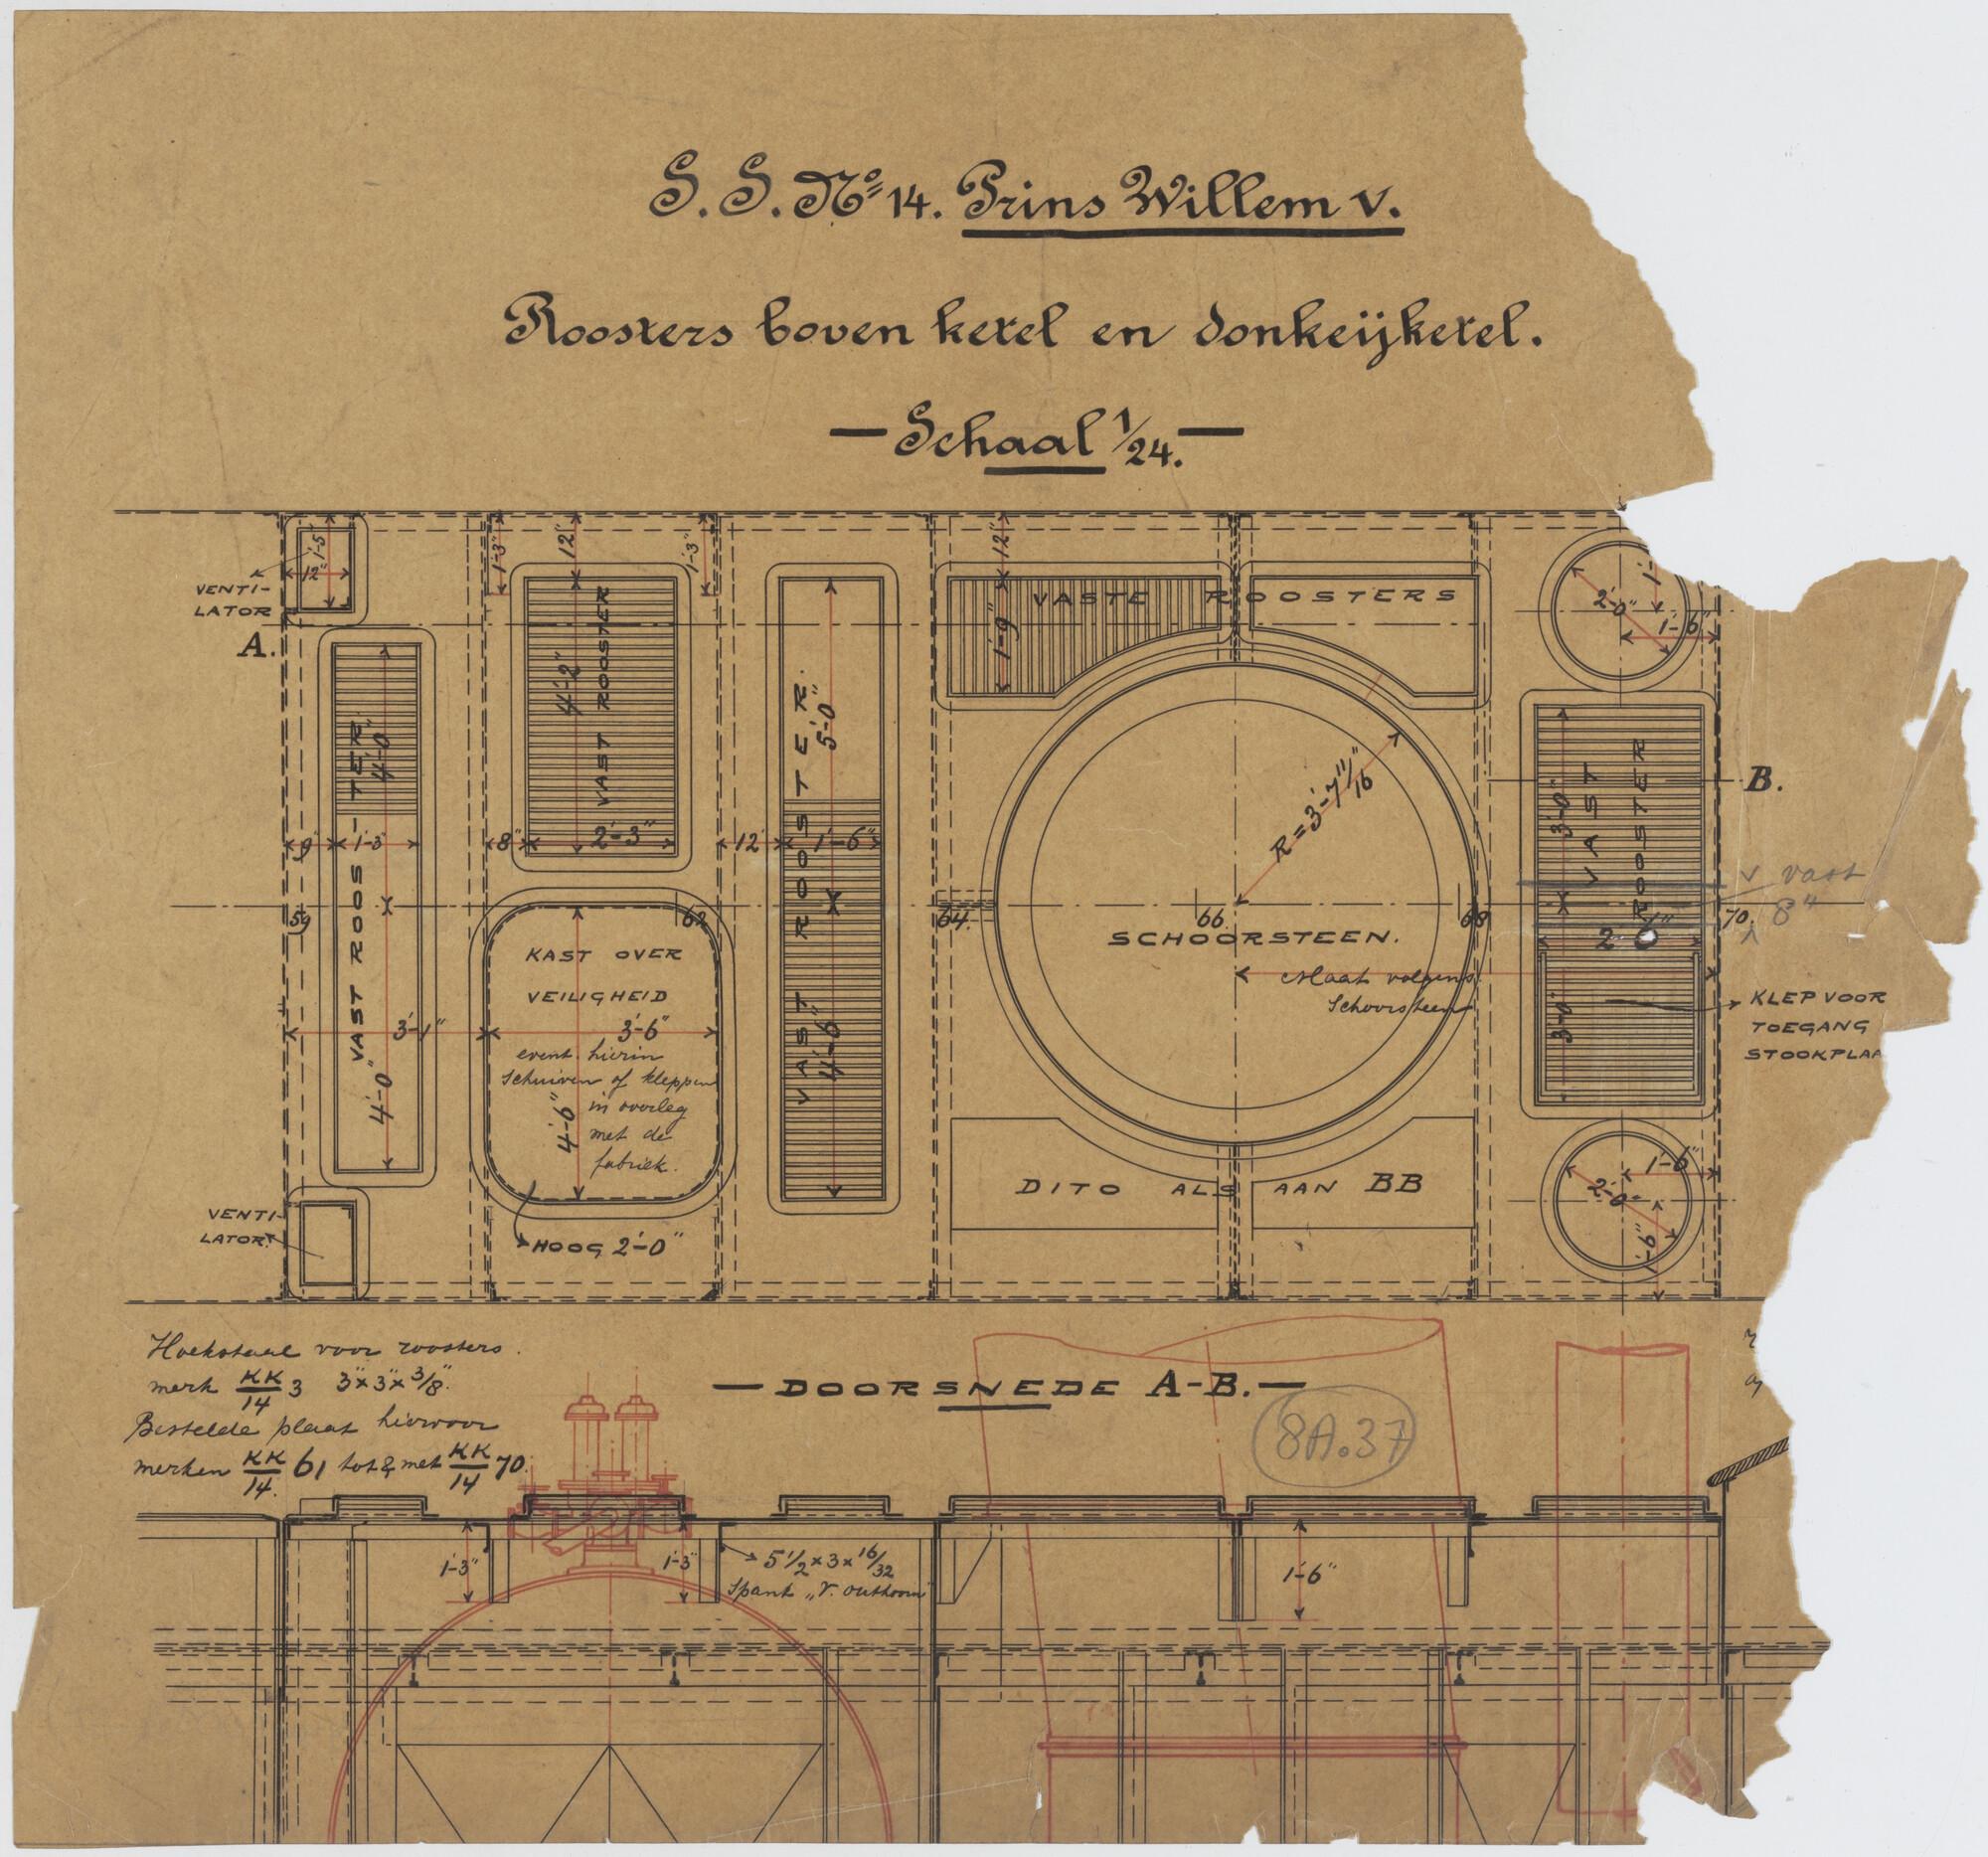 S.S. No 14. Prins Willem V.
Roosters boven ketel en donkeijketel.
— Schaal 1/24. —
VENTI-
LATOR
1'-5"
12"
A.
1'-3"
12"
1'-3"
12"
VAST ROOS-TER.
4'-0"
9"
1'-3"
4'-0"
VAST ROOSTER
4'-2"
8"
2'-3"
VAST ROOSTER.
5'-0"
12"
1'-6"
4'-6"
VASTE ROOSTERS
1'-9"
R=3'-7 11/16"
2'-0"
1'-6"
B.
VAST ROOSTER
3'-0"
v vast
8"
59
62
64.
66.
68
70.
KAST OVER
VEILIGHEID
3'-1"
3'-6"
event. hierin
schuiven of kleppen
in overleg
met de
fabriek.
4'-6"
HOOG 2'-0"
SCHOORSTEEN.
Maat volgens
Schoorsteen
3'-0"
KLEP VOOR
TOEGANG
STOOKPLAA
DITO ALS AAN BB
2'-0"
1'-6"
1'-6"
VENTI-
LATOR.
Hoekstaal voor roosters.
merk KK/14 3 3"x3"x3/8".
Bestelde plaat hiervoor
merken KK/14. 61 tot & met KK/14 70.
— DOORSNEDE A-B. —
8A.37
1'-3"
1'-3"
5 1/2 x 3 x 16/32
Spant "V. Outhoorn"
1'-6"